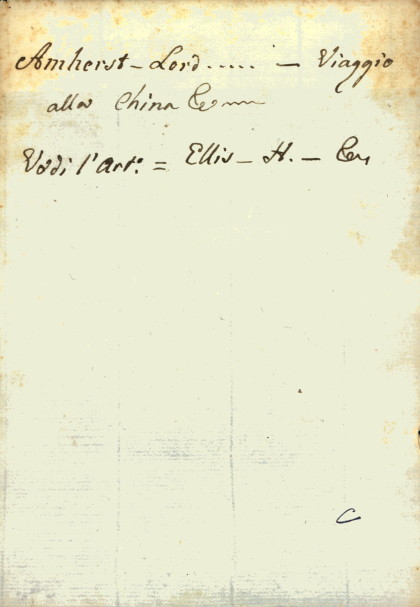 Amherst - Lord ..... - Viaggio
alla China &c
Vedi l'art.o = Ellis - H. - &c,
C